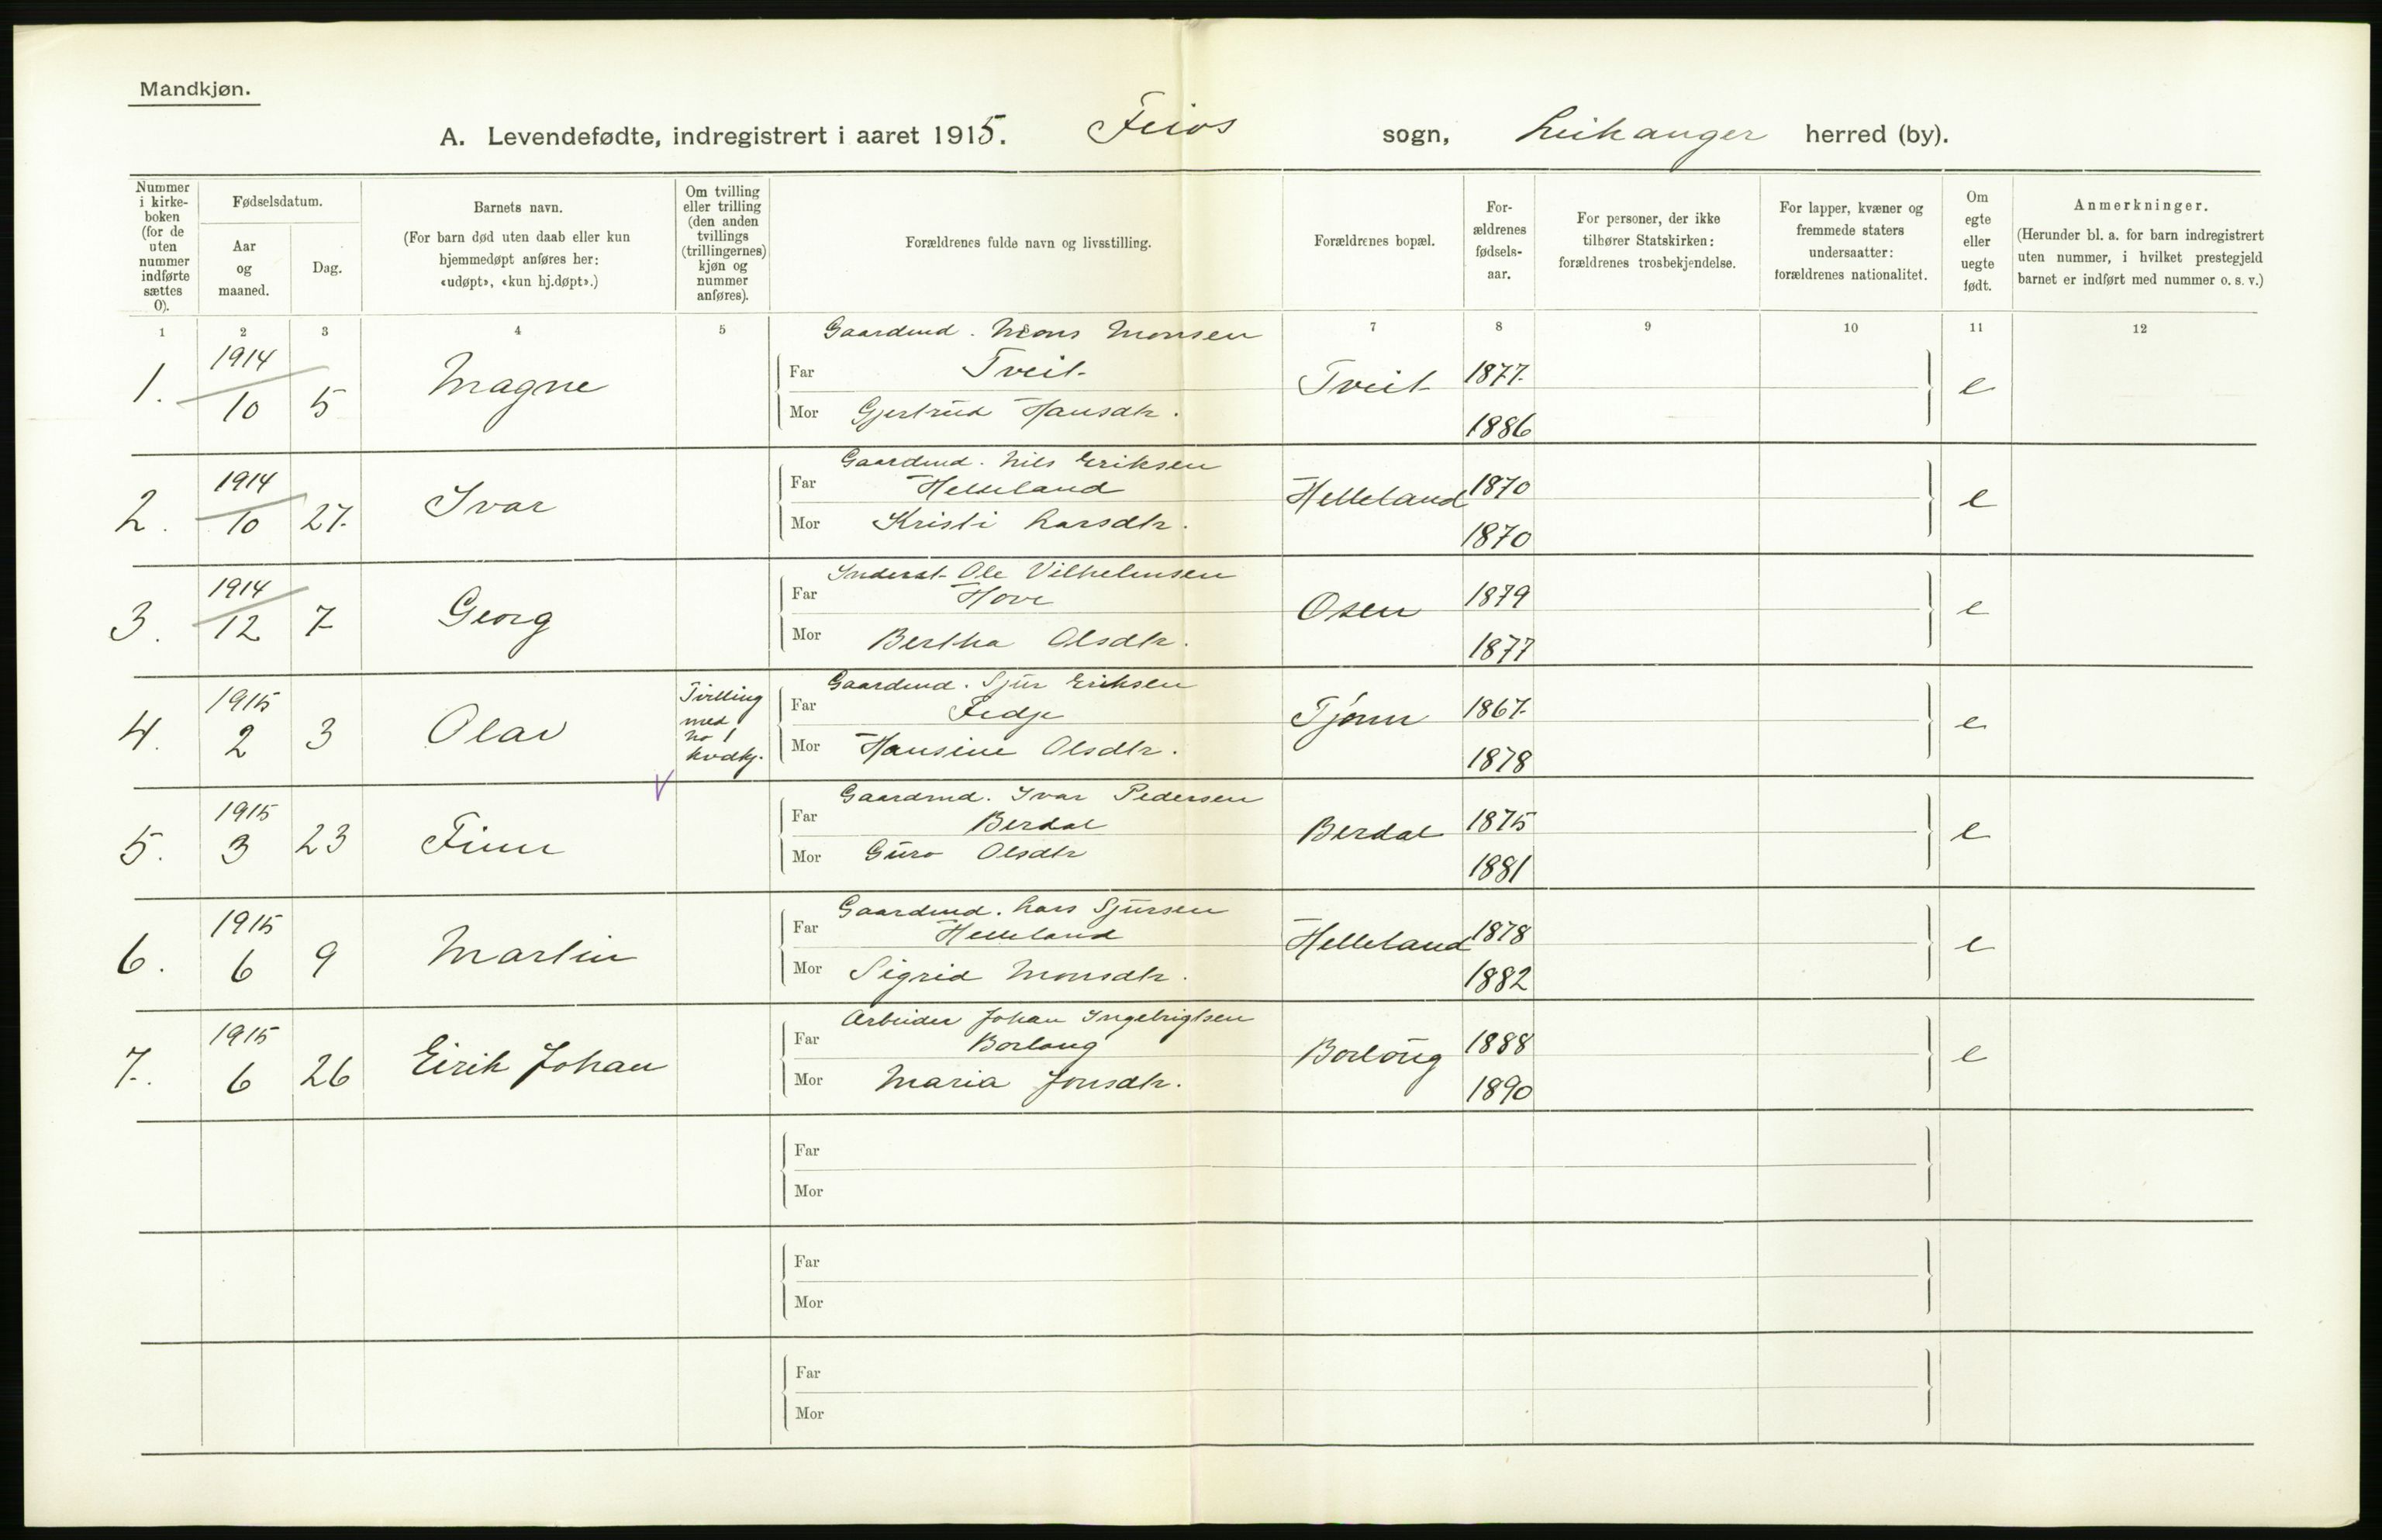 Mandkjøn.
A. Levendefødte, indregistrert i aaret 1915. Feios sogn, Leikanger herred (by).
Nummer i kirke-boken (for de uten nummer indførte sættes 0).
Fødselsdatum.
Aar og maaned.
Dag.
Barnets navn.
(For barn død uten daab eller kun hjemmedøpt anføres her: «udøpt», «kun hj.døpt».)
Om tvilling eller trilling (den anden tvillings (trillingernes) kjøn og nummer anføres).
Forældrenes fulde navn og livsstilling.
Forældrenes bopæl.
For-ældrenes fødsels-aar.
For personer, der ikke tilhører Statskirken: forældrenes trosbekjendelse.
For lapper, kvæner og fremmede staters undersaatter: forældrenes nationalitet.
Om egte eller uegte født.
Anmerkninger.
(Herunder bl. a. for barn indregistrert uten nummer, i hvilket prestegjeld barnet er indført med nummer o. s. v.)
1 2 3 4 5 7 8 9 10 11 12
Gaardmd. Mons Monsen
1. 1914 10 5 Magne Far Tveit Tveit 1877 e
Mor Gjertrud Hansdtr. 1886
Gaardmd. Nils Eriksen
2. 1914 10 27 Ivar Far Helleland Helleland 1870 e
Mor Kristi Larsdtr. 1870
Inderst Ole Vilhelmsen
3. 1914 12 7 Georg Far Hove Osen 1879 e
Mor Bertha Olsdtr. 1877
Gaardmd. Sjur Eriksen
4. 1915 2 3 Olav Tvilling med no 1 kvdkj. Far Fedje Tjønn 1867 e
Mor Hansine Olsdtr. 1878
Gaardmd. Ivar Pedersen
5. 1915 3 23 Finn Far Berdal Berdal 1875 e
Mor Guro Olsdtr 1881
Gaardmd. Lars Sjursen
6. 1915 6 9 Martin Far Helleland Helleland 1878 e
Mor Sigrid Monsdtr. 1882
Arbeider Johan Ingebrigtsen
7. 1915 6 26 Eirik Johan Far Borlaug Borlaug 1888 e
Mor Maria Jonsdtr. 1890
Far
Mor
Far
Mor
Far
Mor